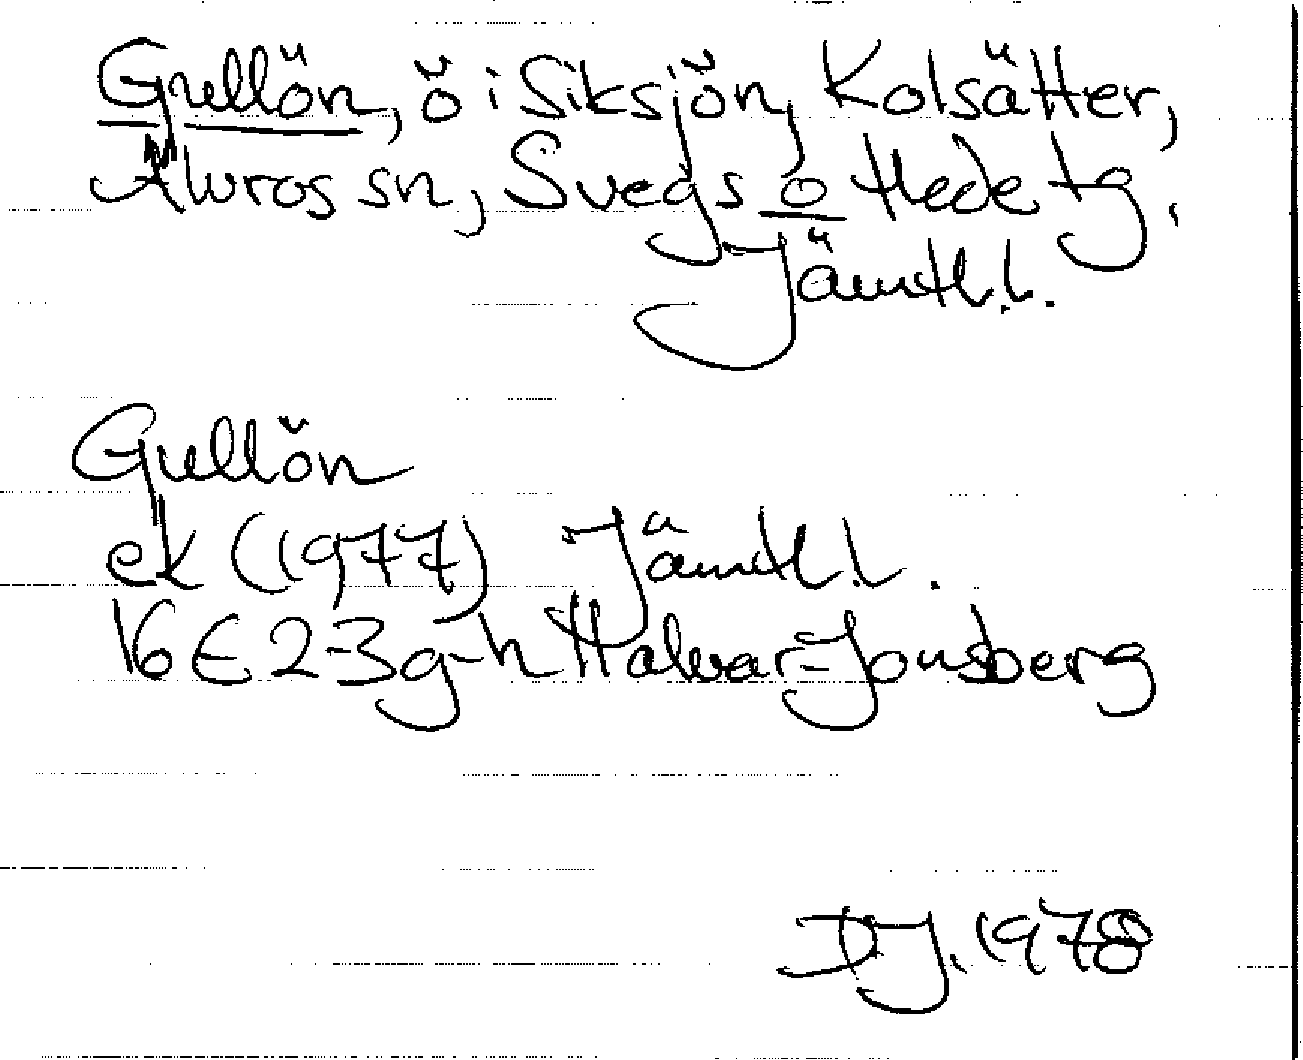 Gullön, ö i Siksjön, Kolsätter,
Älvros sn, Svegs o Hede tg,
Jämtl.l.
Gullön
ek (1977) Jämtl.l.
16E 2-3g-h Halvar-Jonsberg
DJ. 1978